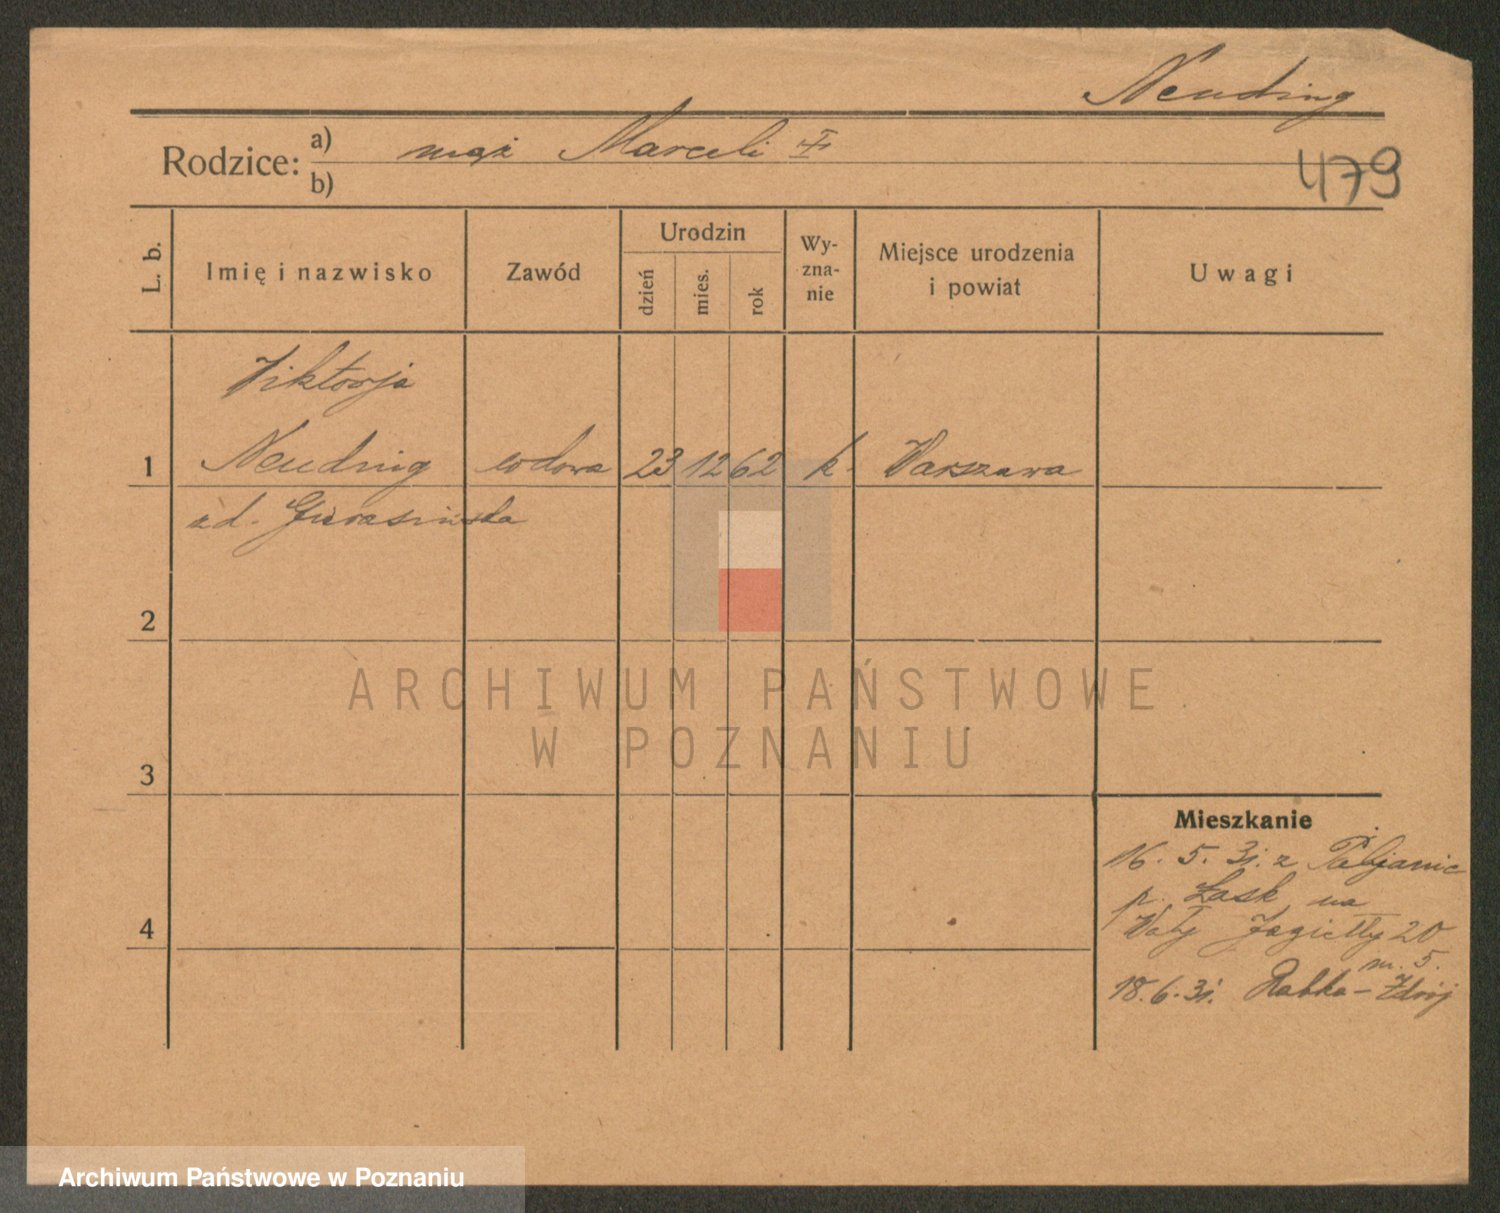 Neuding
Rodzice: a) mąż Marceli †
b)
479
L. b.
Imię i nazwisko
Zawód
Urodzin
dzień
mies.
rok
Wy-
zna-
nie
Miejsce urodzenia
i powiat
Uwagi
Wiktorja
1 Neuding wdowa 23 12 62 k. Warszawa
zd.
2
3
4
Mieszkanie
16. 5. 31. z Pabjanic
p. Łask na
Wały Jagiełły 20
m. 5.
18. 6. 31. Rabka-Zdrój
ARCHIWUM PAŃSTWOWE
W POZNANIU
Archiwum Państwowe w Poznaniu